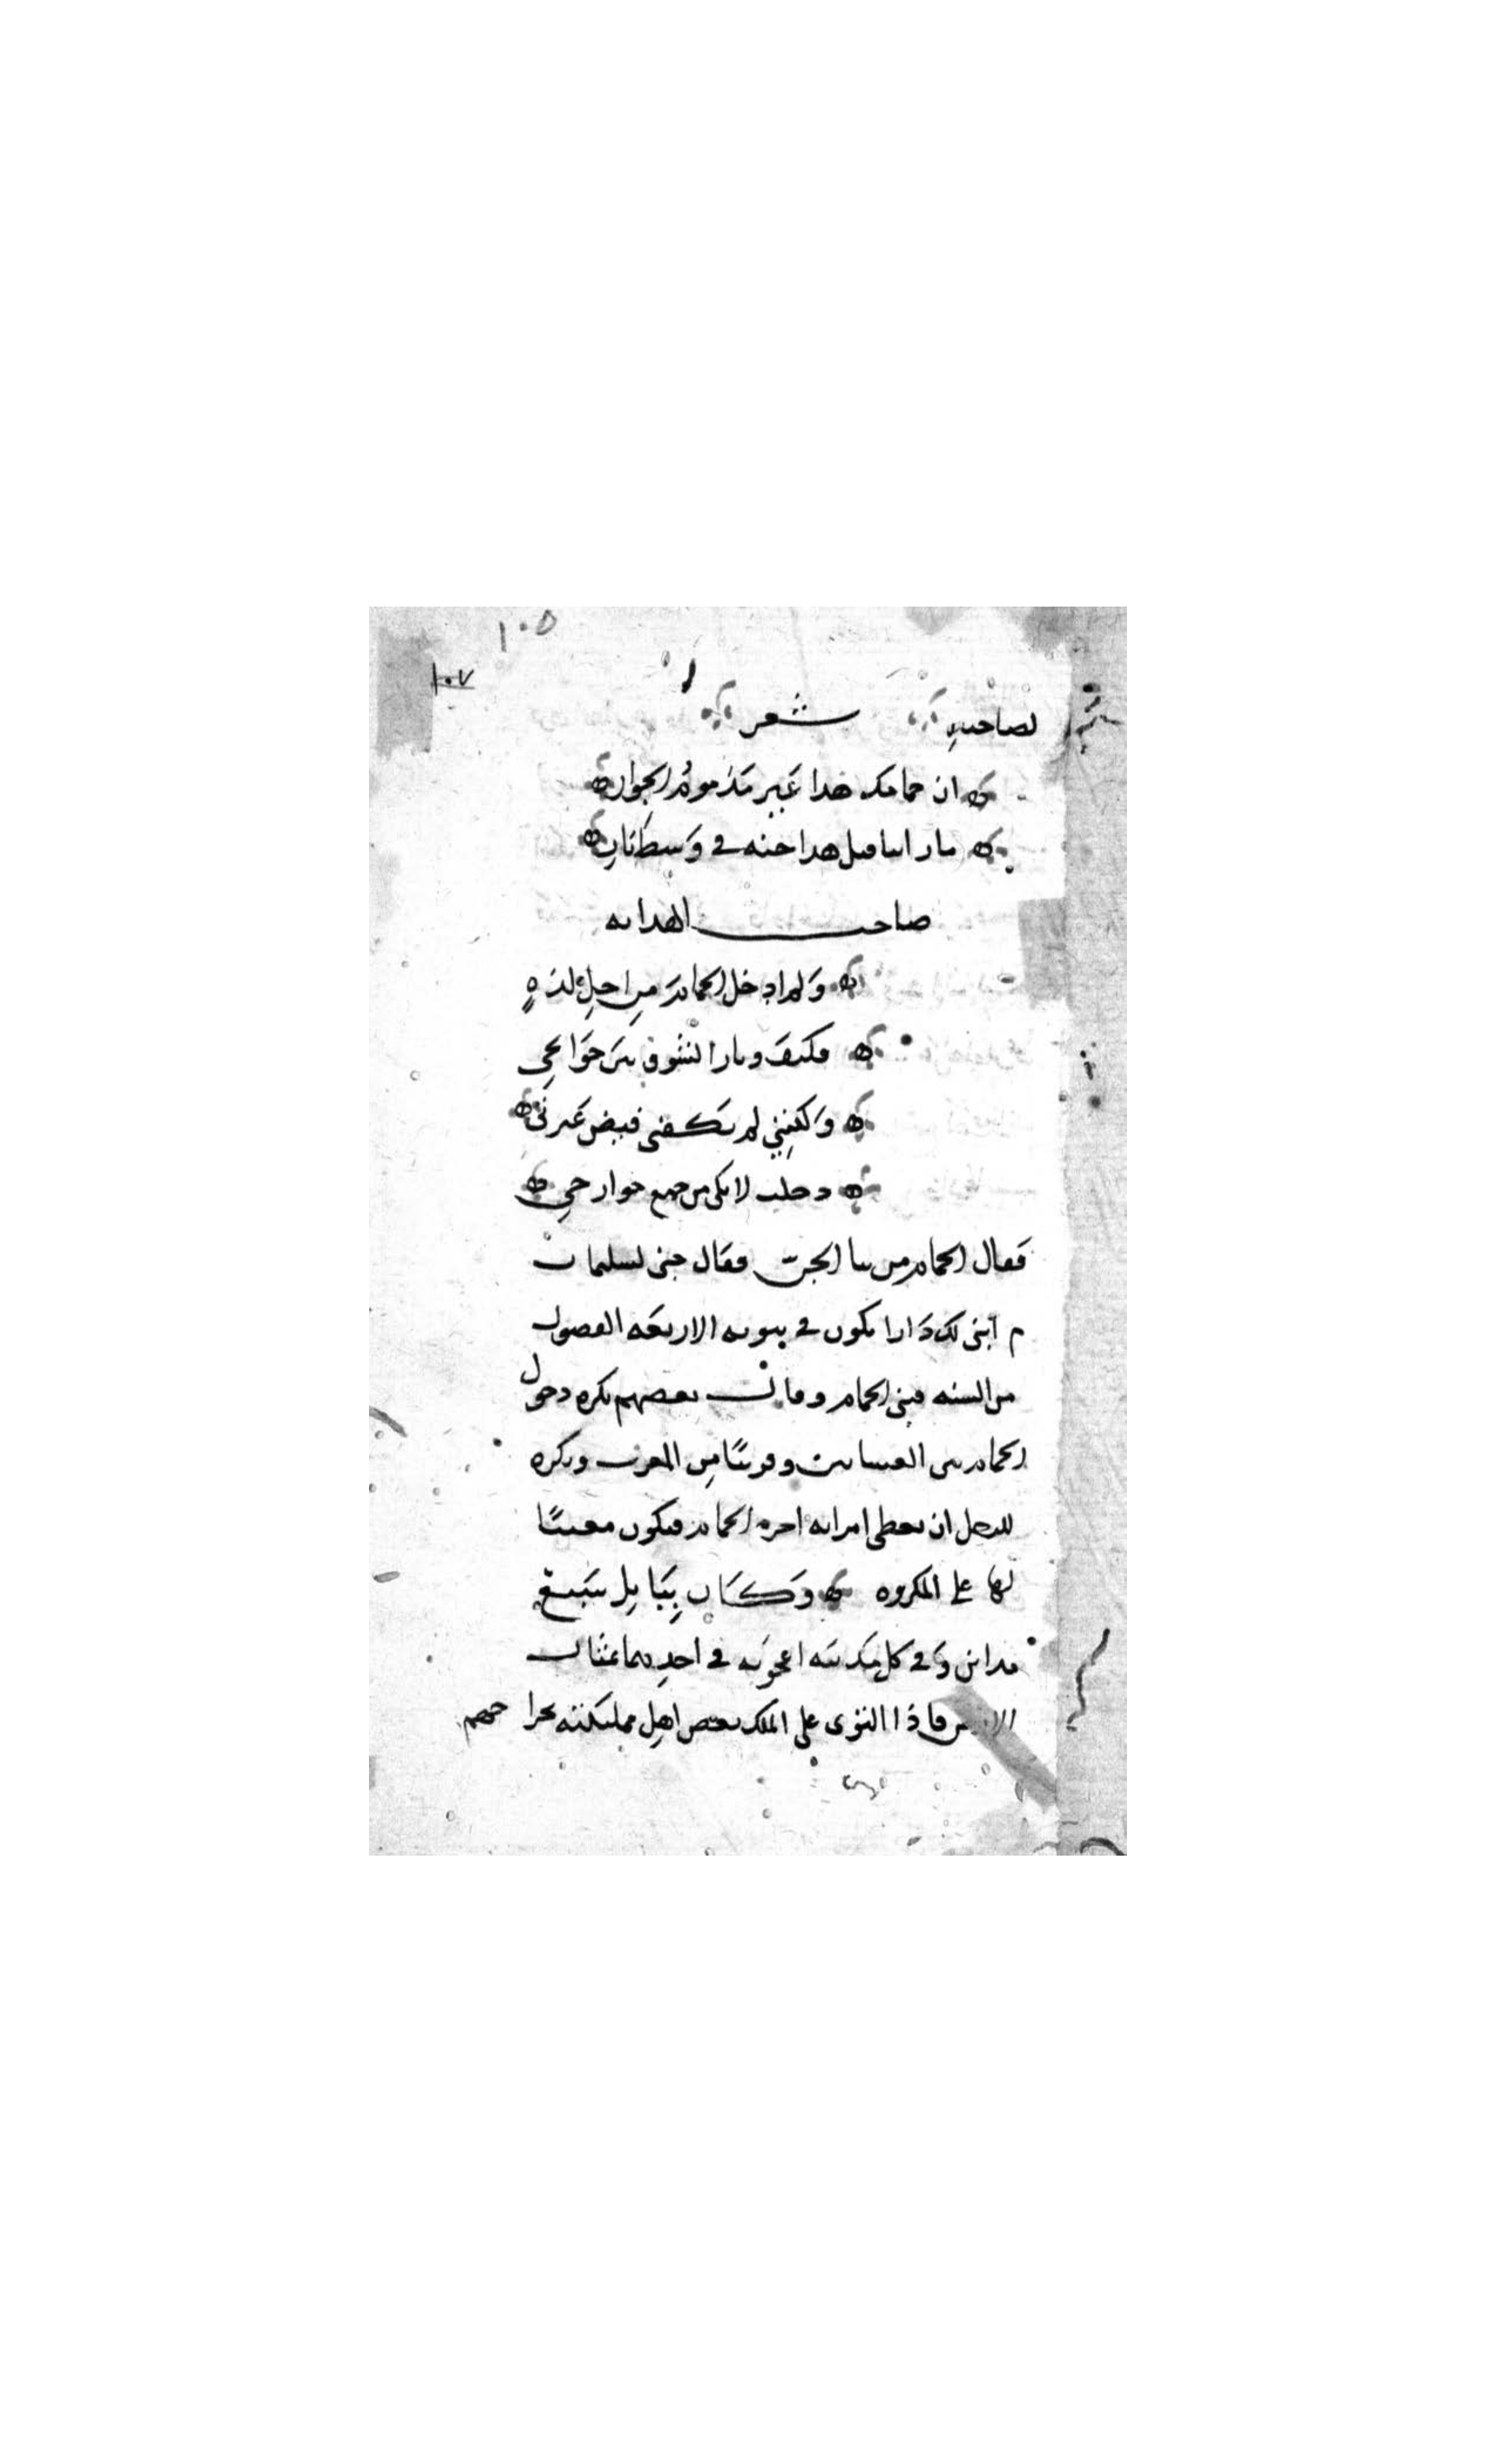 ١٠٥
١٠٧
لصاحبه شعر
ان حمامك هذا غير مذموم الجوار
ما راينا قبل هذا جنه في وسط نار
صاحب الهدايه
ولم ادخل الحمام من اجل لذه
فكيف ونار الشوق بين جوانحي
ولكنني لم يكفني فيض عبرتي
دخلت لابكي من جميع جوارحي
فقال الحمام من بنا الجن فقال جني لسليمان
م ابني لك دارا يكون في بيوته الاربعه الفصول
من السنه فبنى الحمام وقال بعضهم يكره دخول
الحمام بين العشاين وقريبًا من المغرب ويكره
للرجل ان يعطى امراته اجرة الحمام فيكون معينًا
لها على المكروه وكان ببابل سبع
مداين وفي كل مدينه اعجوبه في احديهما تمثال
الارض فاذا التوى على الملك بعض اهل مملكته بخراجهم